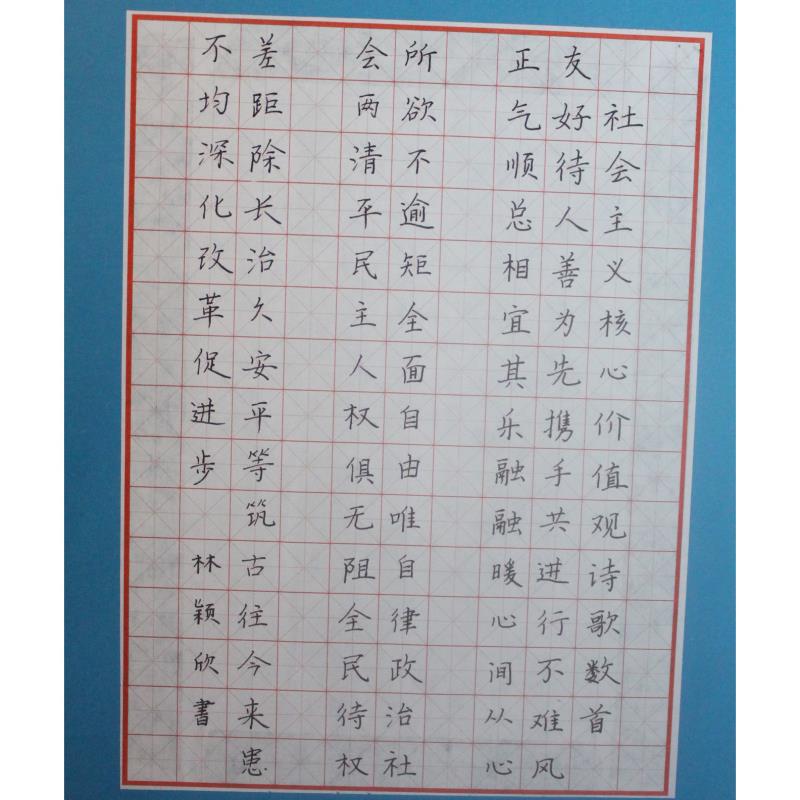 社会主义核心价值观诗歌数首
友好待人善为先携手共进行不难风
正气顺总相宜其乐融融暖心间从心
所欲不逾矩全面自由唯自律政治社
会两清平民主人权俱无阻全民待权
差距除长治久安平等筑古往今来患
不均深化改革促进步
林颖欣書